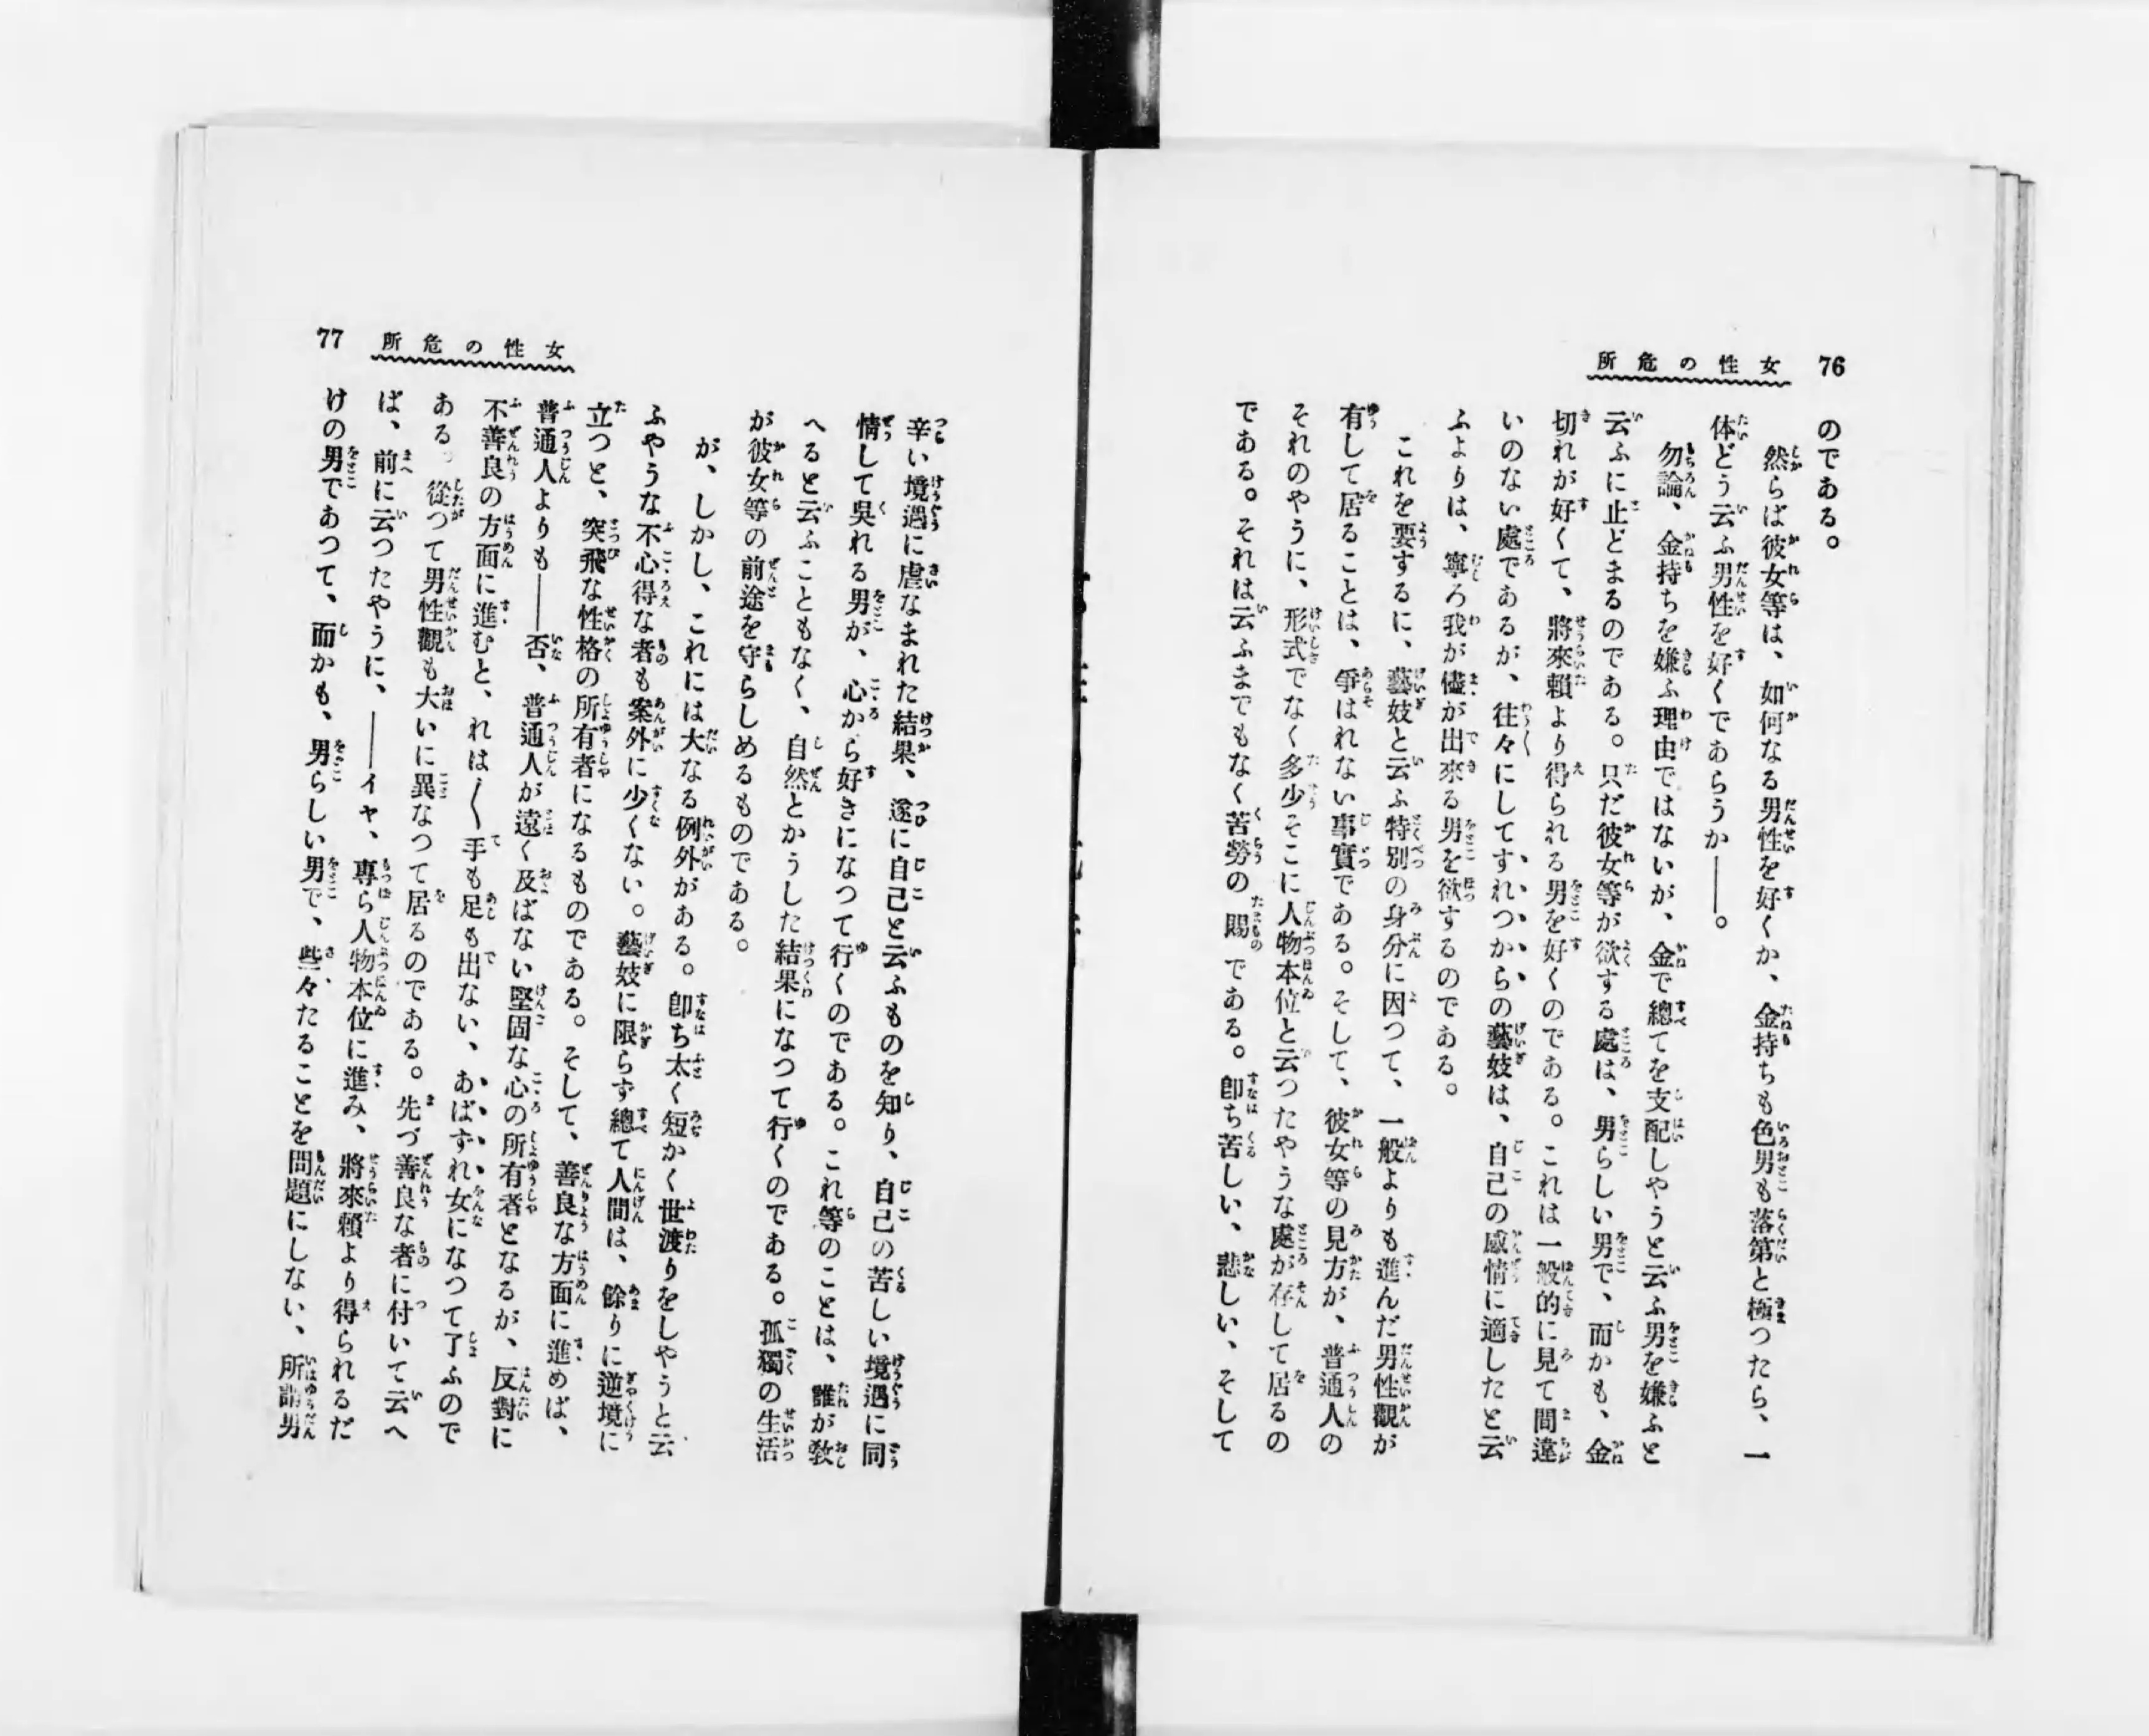 76
女性の危所
のである。
然らば彼女等は、如何なる男性を好くか、金持ちも色男も落第と極つたら、一
体どう云ふ男性を好くであらうか――。
勿論、金持ちを嫌ふ理由ではないが、金で總てを支配しやうと云ふ男を嫌ふと
云ふに止どまるのである。只だ彼女等が欲する處は、男らしい男で、而かも、金
切れが好くて、將來頼より得られる男を好くのである。これは一般的に見て間違
いのない處であるが、往々にしてすれつからの藝妓は、自己の感情に適したと云
ふよりは、寧ろ我が儘が出來る男を欲するのである。
これを要するに、藝妓と云ふ特別の身分に因つて、一般よりも進んだ男性觀が
有して居ることは、爭はれない事實である。そして、彼女等の見方が、普通人の
それのやうに、形式でなく多少そこに人物本位と云つたやうな處が存して居るの
である。それは云ふまでもなく苦勞の賜である。卽ち苦しい、悲しい、そして
女性の危所
77
辛い境遇に虐なまれた結果、遂に自己と云ふものを知り、自己の苦しい境遇に同
情して呉れる男が、心から好きになつて行くのである。これ等のことは、誰が敎
へると云ふこともなく、自然とかうした結果になつて行くのである。孤獨の生活
が彼女等の前途を守らしめるものである。
が、しかし、これには大なる例外がある。卽ち太く短かく世渡りをしやうと云
ふやうな不心得な者も案外に少くない。藝妓に限らず總て人間は、餘りに逆境に
立つと、突飛な性格の所有者になるものである。そして、善良な方面に進めば、
普通人よりも――否、普通人が遠く及ばない堅固な心の所有者となるが、反對に
不善良の方面に進むと、れは〱手も足も出ない、あばずれ女になつて了ふので
ある。從つて男性觀も大いに異なつて居るのである。先づ善良な者に付いて云へ
ば、前に云つたやうに、――イヤ、專ら人物本位に進み、將來頼より得られるだ
けの男であつて、而かも、男らしい男で、些々たることを問題にしない、所謂男